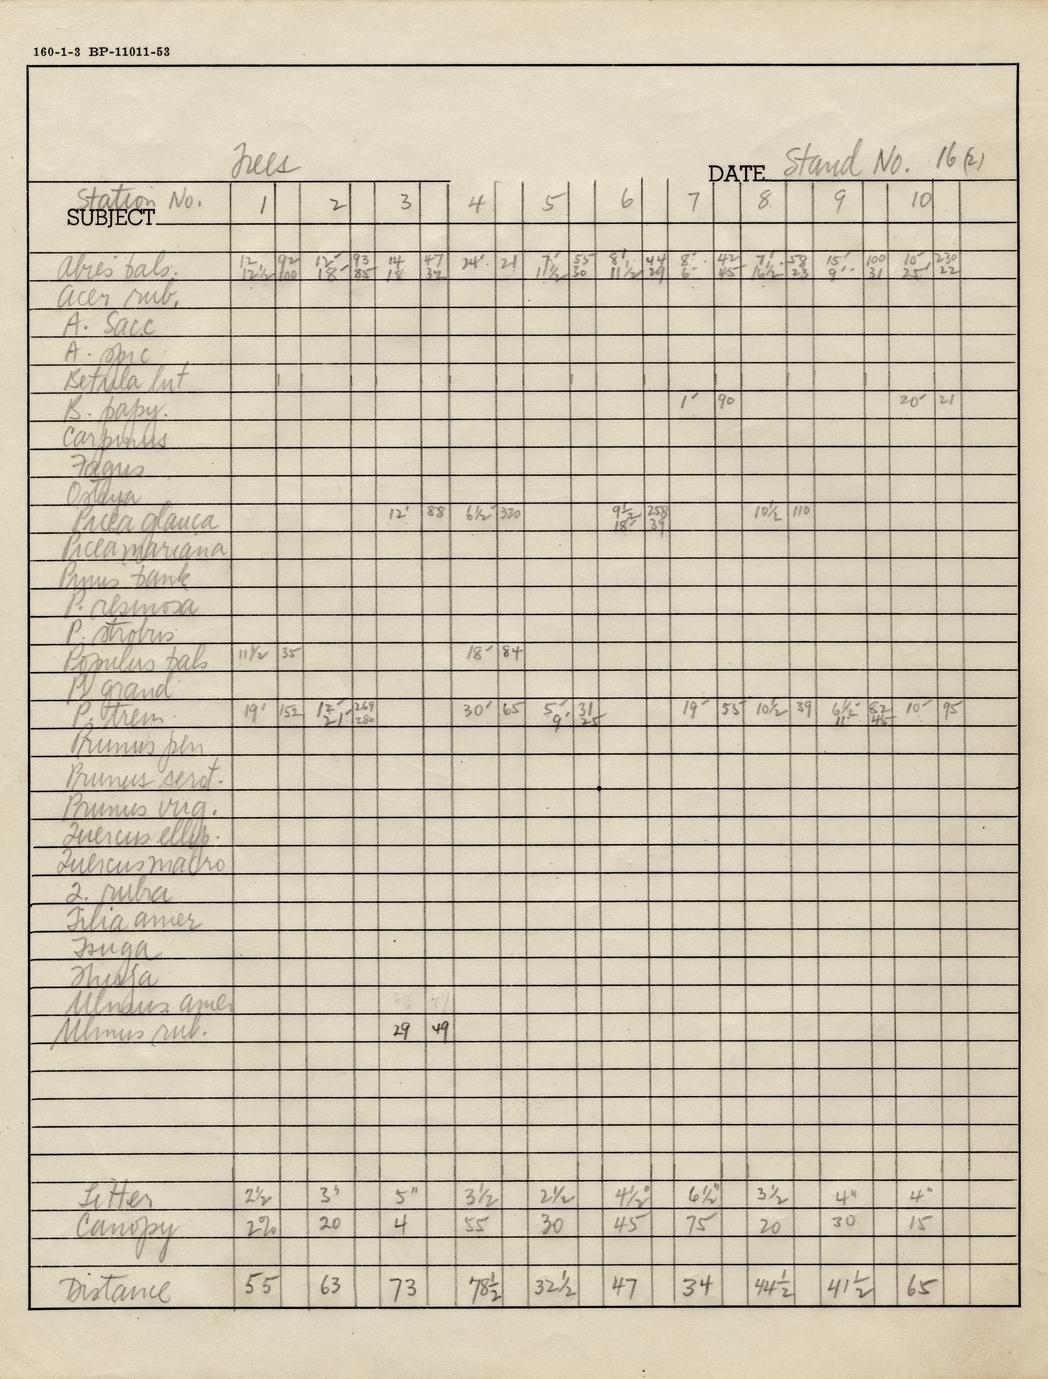 160-1-3 BP-11011-53
Trees
DATE Stand No. 16 (2)
Station No. 1 2 3 4 5 6 7 8 9 10
SUBJECT
Abies bals. 12 92 12' 93 14 47 24' 21 7' 55 8' 44 8' 42 7' 58 15' 100 10' 230
12½ 100 18' 85 18 37 11½ 30 11½ 29 6' 45 16½ 23 9' 31 25' 22
Acer rub.
A. Sacc
A. spic
Betula lut
B. papy. 1' 90 20' 21
Carpinus
Fagus
Ostrya
Picea glauca 12' 88 6½' 330 9½ 258 10½ 110
18' 39
Picea mariana
Pinus bank
P. resinosa
P. strobus
Populus bals 11½ 35 18' 84
P. grand
P. trem. 19' 152 12' 269 30' 65 5' 31 19' 55 10½ 39 6½' 82 10' 95
21' 280 9' 25 11' 45
Prunus pen
Prunus serot.
Prunus virg.
Quercus ellip.
Quercus macro
Q. rubra
Tilia amer
Tsuga
Thuja
Ulmus amer
Ulmus rub. 29 49
Litter 2½ 3" 5" 3½ 2½ 4½" 6½" 3½ 4" 4"
Canopy 2% 20 4 55 30 45 75 20 30 15
Distance 55 63 73 78½ 32½ 47 34 44½ 41½ 65